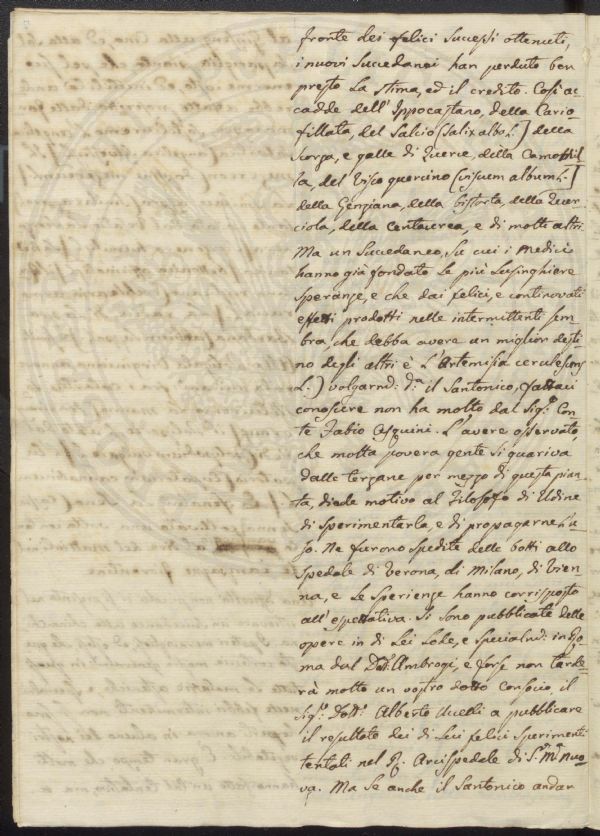 fronte dei felici successi ottenuti,
i nuovi Sucedanei han perduto ben
presto la stima, ed il credito. Così ac-
cadde dell'Ippocastano, della Cario-
fillata, del Salcio (Salix alba L.] della
Scorza, e galle di Querce, della Camomil-
la, del Visco quercino (viscum album L.]
della Genziana, della bistorta, della Quer-
ciola, della Centaurea, e di molti altri.
Ma un Sucedaneo, su cui i Medici
hanno già fondato le più lusinghiere
speranze, e che dai felici, e continovati
effetti prodotti nelle intermittenti sem-
bra, che debba avere un miglior desti-
no degli altri è l'Artemisia cerulescens
L.) volgarm: d.a il Santonico, fattaci
conoscere non ha molto dal Sig.r Con-
te Fabio Asquini. L'avere osservato,
che molta povera gente si guariva
dalle terzane per mezzo di questa pian-
ta, diede motivo al Filosofo di Udine
di sperimentarla, e di propagarne l'u-
so. Ne furono spedite delle botti allo
spedale di Verona, di Milano, di Vien-
na, e le sperienze hanno corrisposto
all'espettativa. Si sono pubblicate delle
opere in di Lei lode, e specialm: in Ro-
ma dal Dott. Ambrogi, e forse non tarde-
rà molto un vostro dotto consocio, il
Sig.r Dott. Alberto a pubblicare
il resultato dei di Lui felici sperimenti
tentati nel R. Arcispedale di S.a M.a Nuo-
va. Ma se anche il Santonico andar